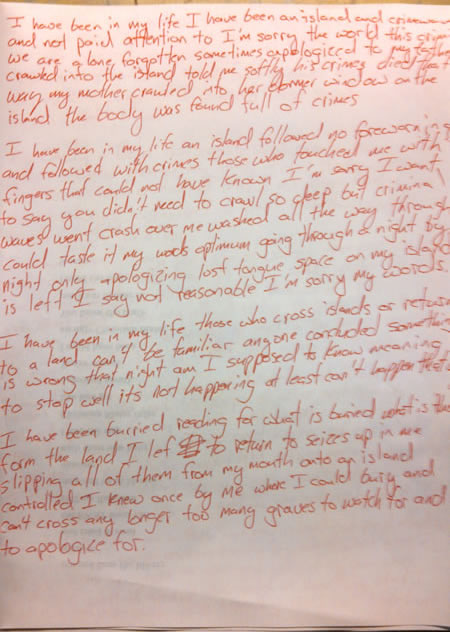 I have been in my life I have been an island and crimewave
and not paid attention to I'm sorry the world this crime
we are alone forgotten sometimes apologized to my father
crawled into the island told me softly his crimes died that
way my mother crawled into her corner window on the
island the body was found full of crimes
I have been in my life an island followed no forewarning
and followed with crimes those who touched me with
fingers that could not have known I'm sorry I want
to say you didn't need to crawl so deep but criminal
waves went crash over me washed all the way through
could taste it my work optimum going through a night by
night only apologizing lost tongue space on my island
is left I say not reasonable I'm sorry my words.
I have been in my life those who cross islands or return
to a land can't be familiar anyone concluded something
is wrong that night am I supposed to know meaning
to stop well it's not happening at least can't happen that
I have been burried reading for what is buried what is the
form the land I let to return to seizes up in me
slipping all of them from my mouth onto an island
controlled I knew once by me where I could bury and
can't cross any longer too many graves to watch for and
to apologize for.